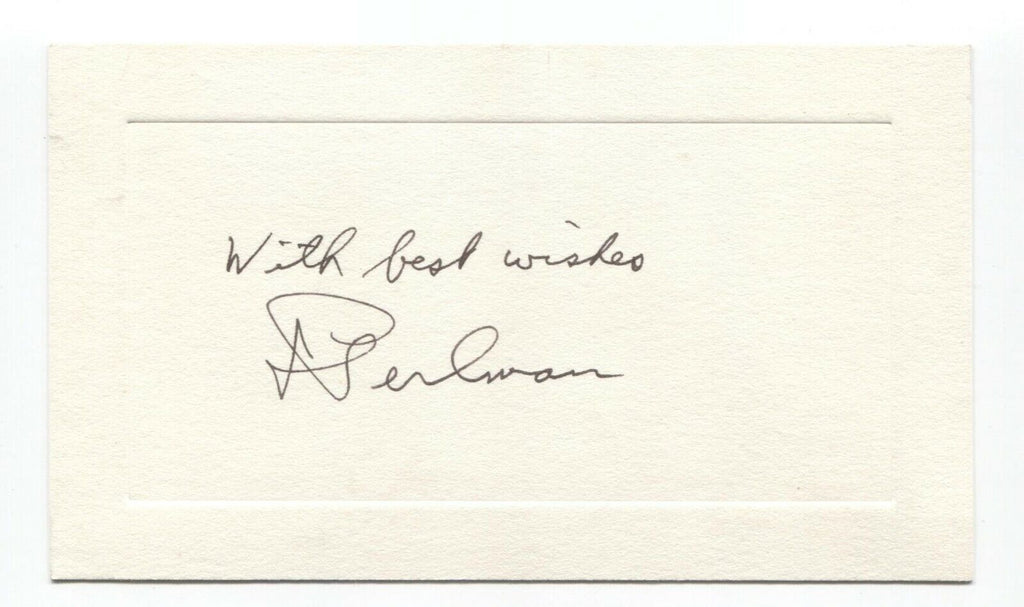 With best wishes
A Perlman